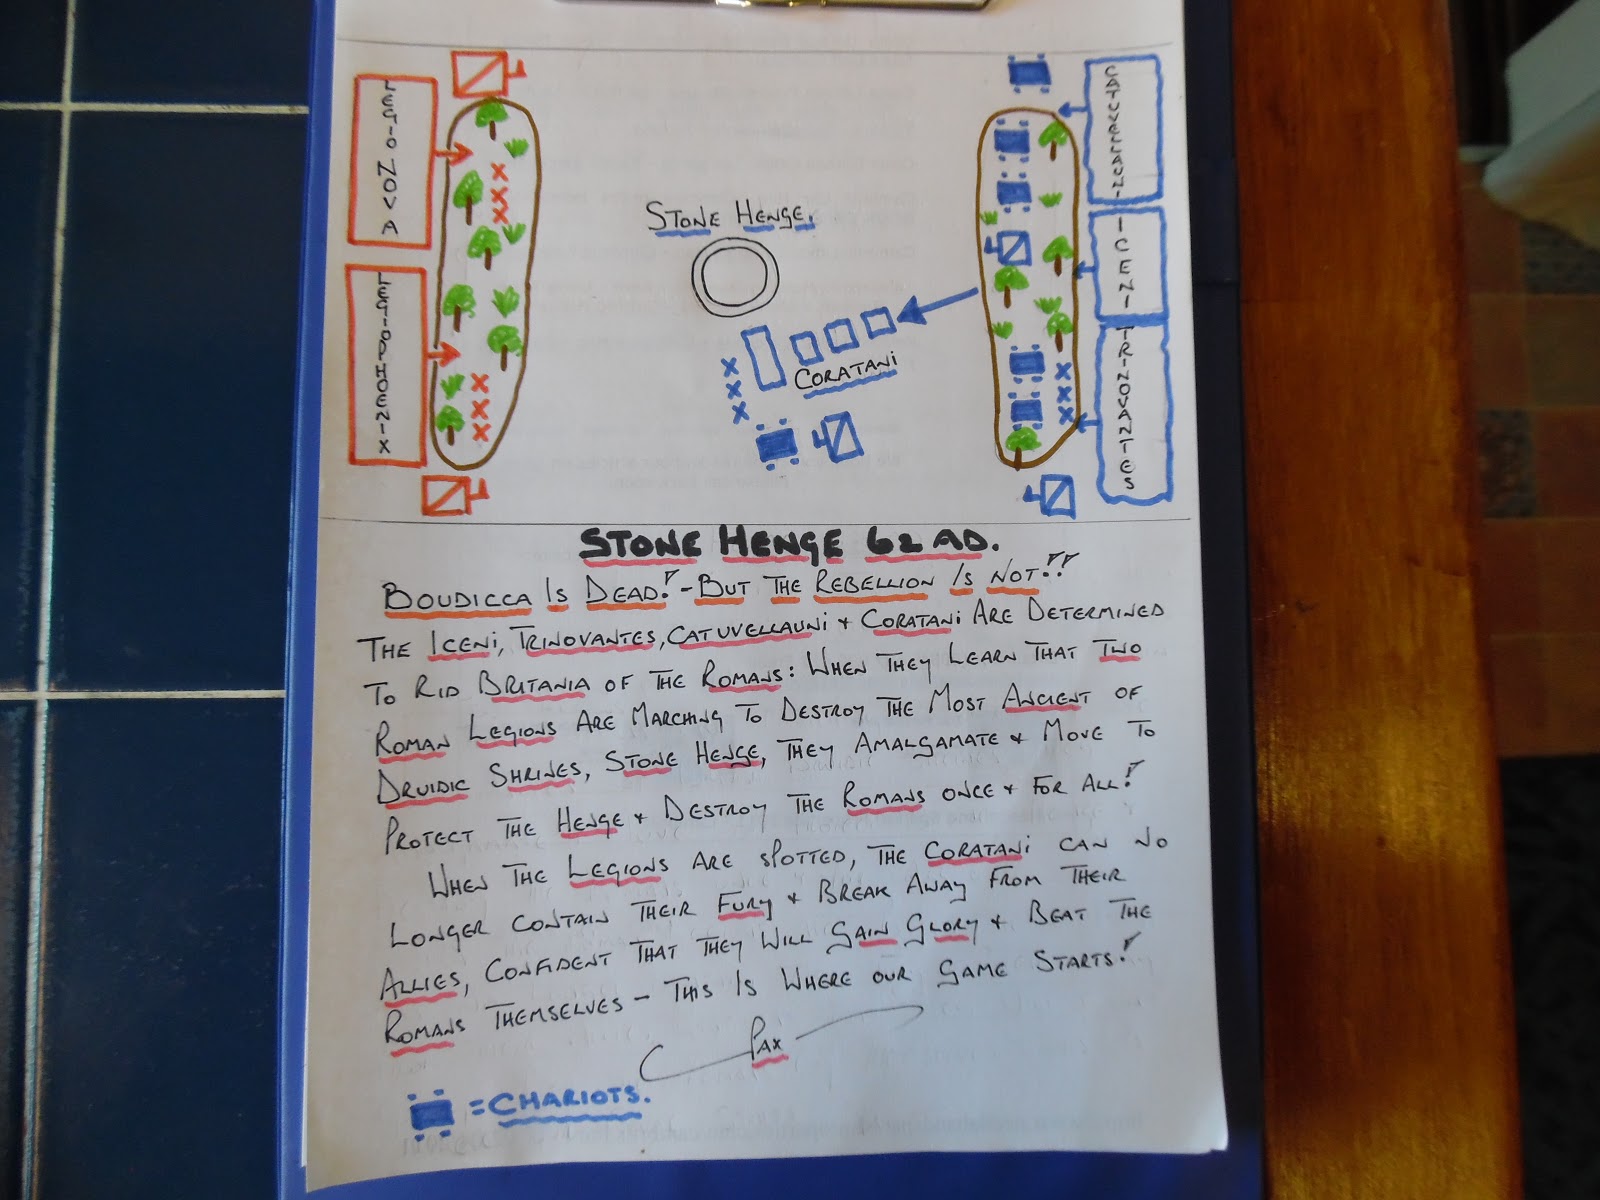 LEGIO NOVA
LEGIO PHOENIX
STONE HENGE.
CORATANI
CATUVELLAUNI
ICENI
TRINOVANTES
STONE HENGE 62 AD.
BOUDICCA IS DEAD! - BUT THE REBELLION IS NOT!!
THE ICENI, TRINOVANTES, CATUVELLAUNI + CORATANI ARE DETERMINED
TO RID BRITANIA OF THE ROMANS: WHEN THEY LEARN THAT TWO
ROMAN LEGIONS ARE MARCHING TO DESTROY THE MOST ANCIENT OF
DRUIDIC SHRINES, STONE HENGE, THEY AMALGAMATE + MOVE TO
PROTECT THE HENGE + DESTROY THE ROMANS ONCE + FOR ALL!
WHEN THE LEGIONS ARE SPOTTED, THE CORATANI CAN NO
LONGER CONTAIN THEIR FURY + BREAK AWAY FROM THEIR
ALLIES, CONFIDENT THAT THEY WILL GAIN GLORY + BEAT THE
ROMANS THEMSELVES - THIS IS WHERE OUR GAME STARTS!
PAX
= CHARIOTS.